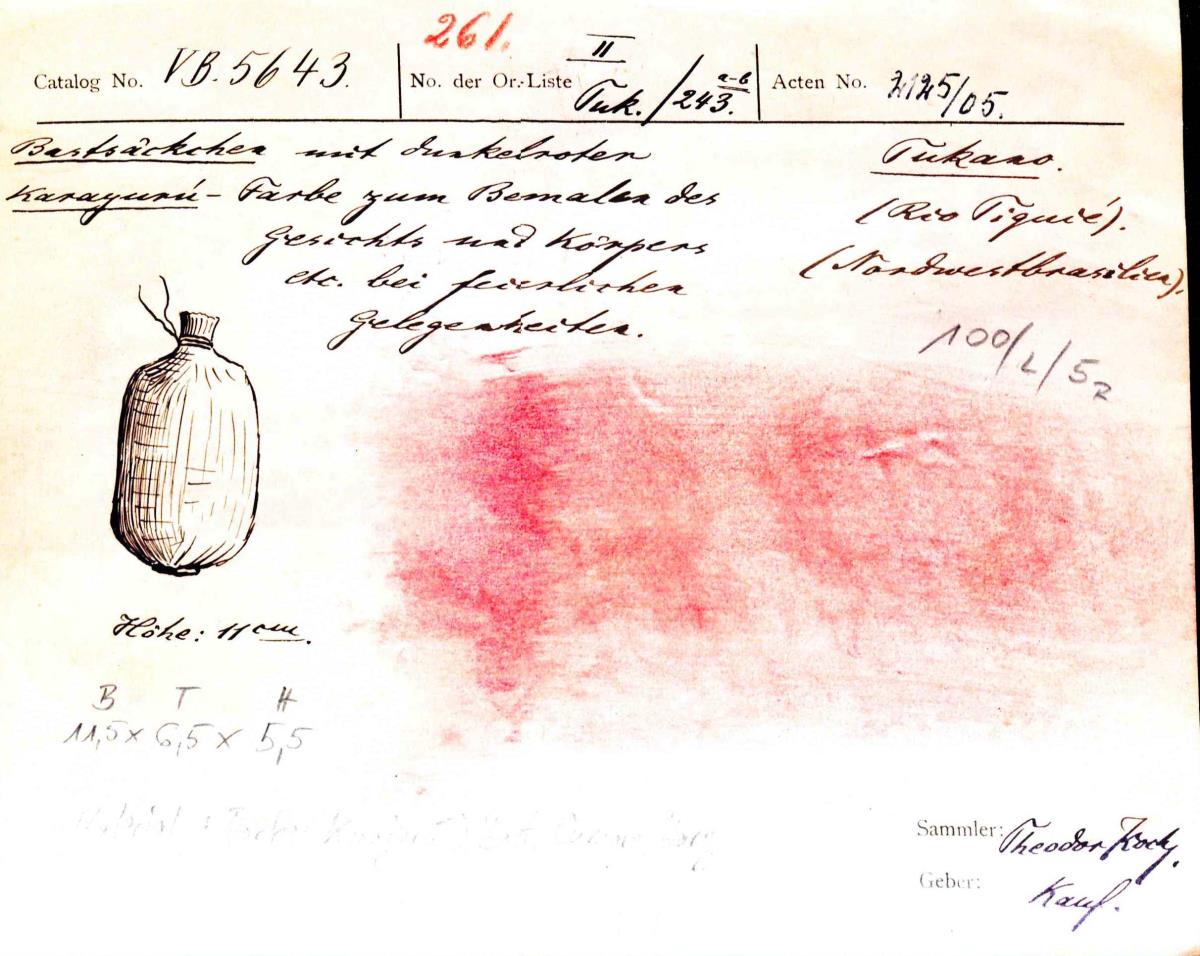 261.
Catalog No. VB. 5643.
No. der Or.-Liste II Tuk./243. a-b
Acten No. 2125/05.
Bastsäckchen mit dunkelroter
Karayurú- Farbe zum Bemalen des
Gesichts und Körpers
etc. bei feierlichen
Gelegenheiten.
Tukano.
(Rio Tiquié).
(Nordwestbrasilien).
100/L/5
Höhe: 11 cm.
B T H
11,5 x 6,5 x 5,5
Sammler: Theodor Koch.
Geber: Kauf.